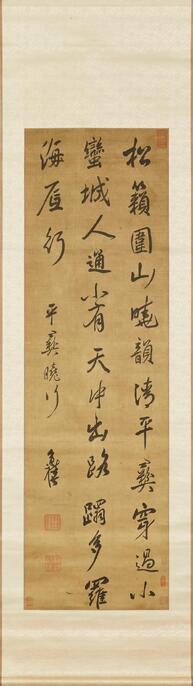 松籟圍山曉韻清平彝穿過小
蠻城人通小有天中出路躡多羅
海底行
平彝曉行